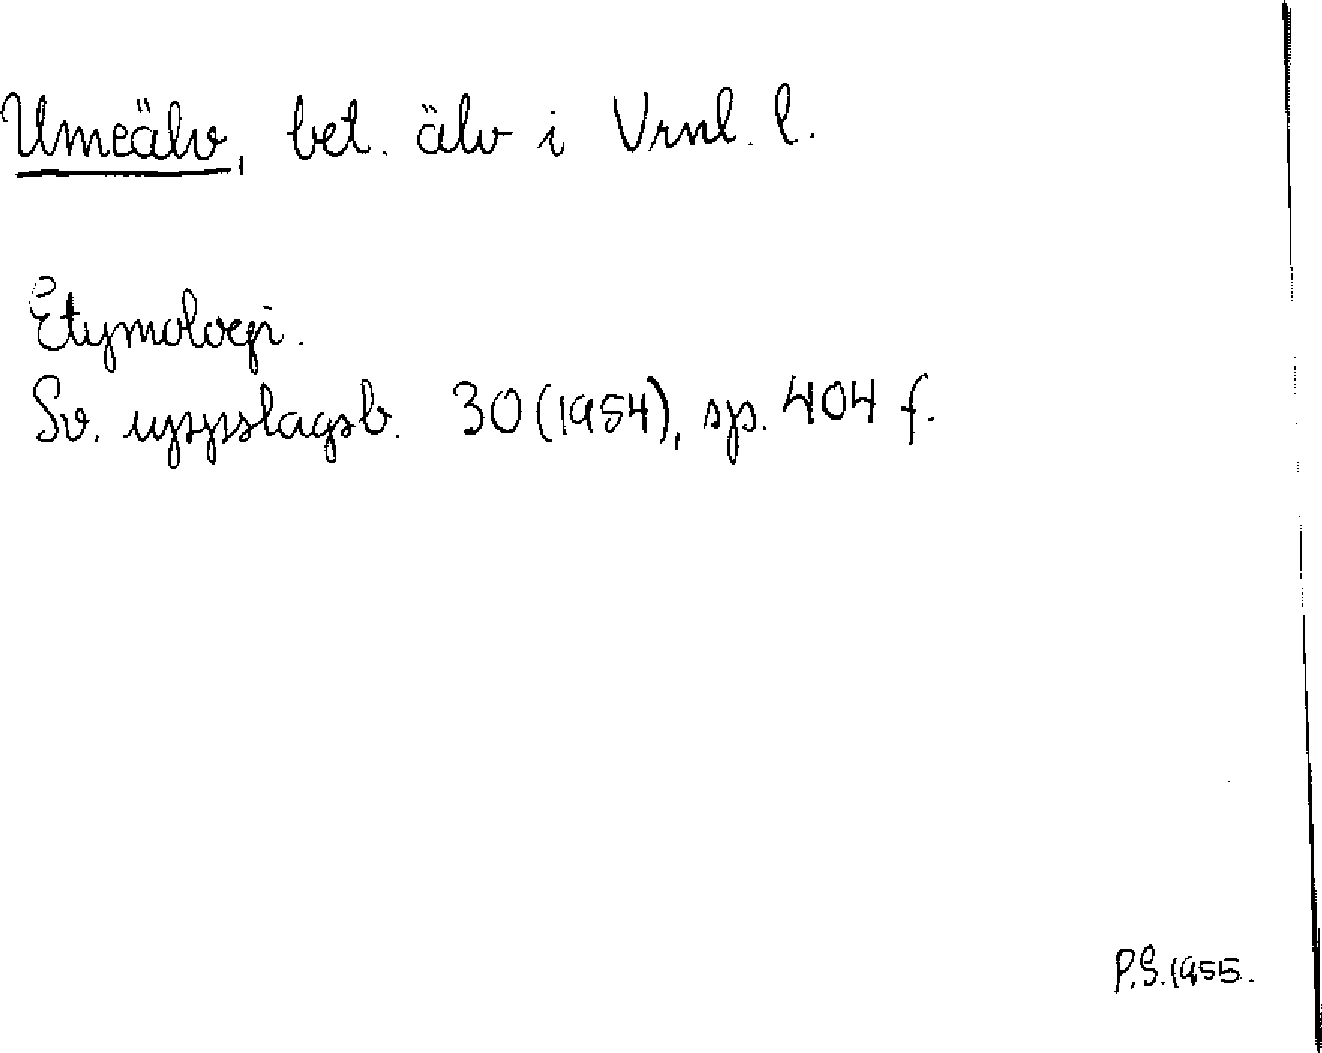 Umeälv, bet. älv i Vrnl. l.
Etymologi.
Sv. uppslagsb. 30 (1954), sp. 404 f.
P.S. 1955.